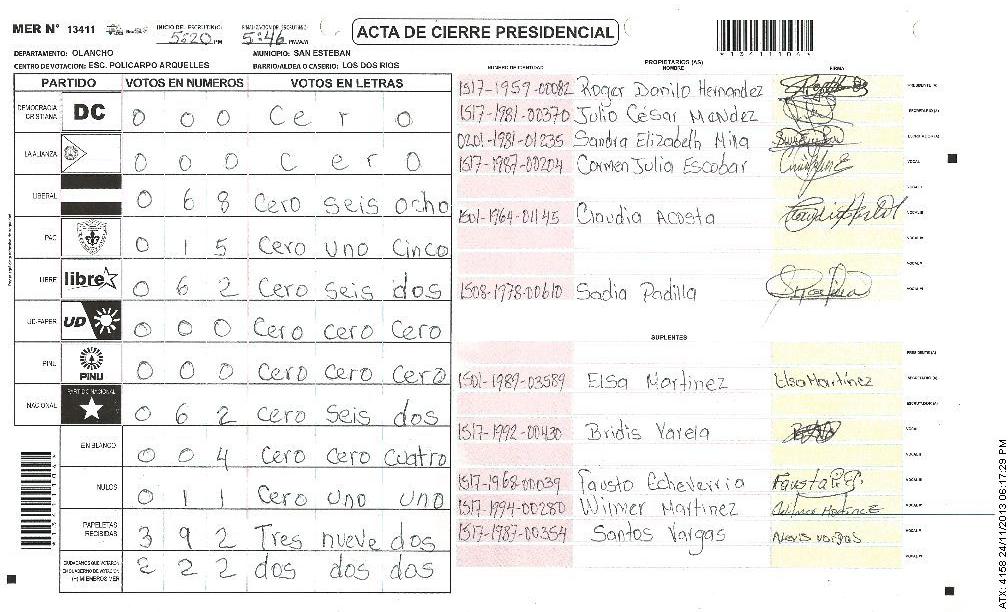 MER N° 13411 INICIO DE ESCRUTINIO: 5:20 PM FINALIZACION DE ESCRUTINIO: 5:46 PM/A.M
ACTA DE CIERRE PRESIDENCIAL
DEPARTAMENTO: OLANCHO MUNICIPIO: SAN ESTEBAN
CENTRO DE VOTACION: ESC. POLICARPO ARQUELLES BARRIO/ALDEA O CASERIO: LOS DOS RIOS
PARTIDO VOTOS EN NUMEROS VOTOS EN LETRAS
DEMOCRACIA CRISTIANA DC 0 0 0 Cero
LA ALIANZA 0 0 0 cero
LIBERAL 0 6 8 Cero seis ocho
PAC 0 1 5 Cero uno Cinco
LIBRE libre 0 6 2 Cero seis dos
UD-FAPER UD 0 0 0 Cero cero Cero
PINU PINU 0 0 0 Cero cero cero
NACIONAL PARTIDO NACIONAL 0 6 2 Cero seis dos
EN BLANCO 0 0 4 Cero Cero cuatro
NULOS 0 1 1 Cero uno uno
PAPELETAS RECIBIDAS 3 9 2 Tres nueve dos
CIUDADANOS QUE VOTARON EN CUADERNO DE VOTACION (+) MIEMBROS MER 2 2 2 dos dos dos
PROPIETARIOS (AS)
NUMERO DE IDENTIDAD NOMBRE FIRMA
1517-1959-00082 Roger Danilo Hernandez PRESIDENTE (A)
1517-1981-00370 Julio César Mendez SECRETARIO (A)
0201-1981-01235 Sandra Elizabeth Mina ESCRUTADOR (A)
1517-1987-00204 Carmen Julia Escobar VOCAL I
VOCAL II
1501-1964-01145 Claudia Acosta VOCAL III
VOCAL IV
VOCAL V
1508-1978-00610 Sadia Padilla VOCAL VI
SUPLENTES
PRESIDENTE (A)
1501-1989-03589 Elsa Martinez Elsa Martínez SECRETARIO (A)
ESCRUTADOR (A)
1517-1992-00430 Bridis Varela VOCAL I
VOCAL II
1517-1968-00039 Fausto Echeverria VOCAL III
1517-1994-00280 Wilmer Martinez VOCAL IV
1517-1987-00354 Santos Vargas Alexis vargas VOCAL V
VOCAL VI
ATX: 4158 24/11/2013 06:17:29 PM